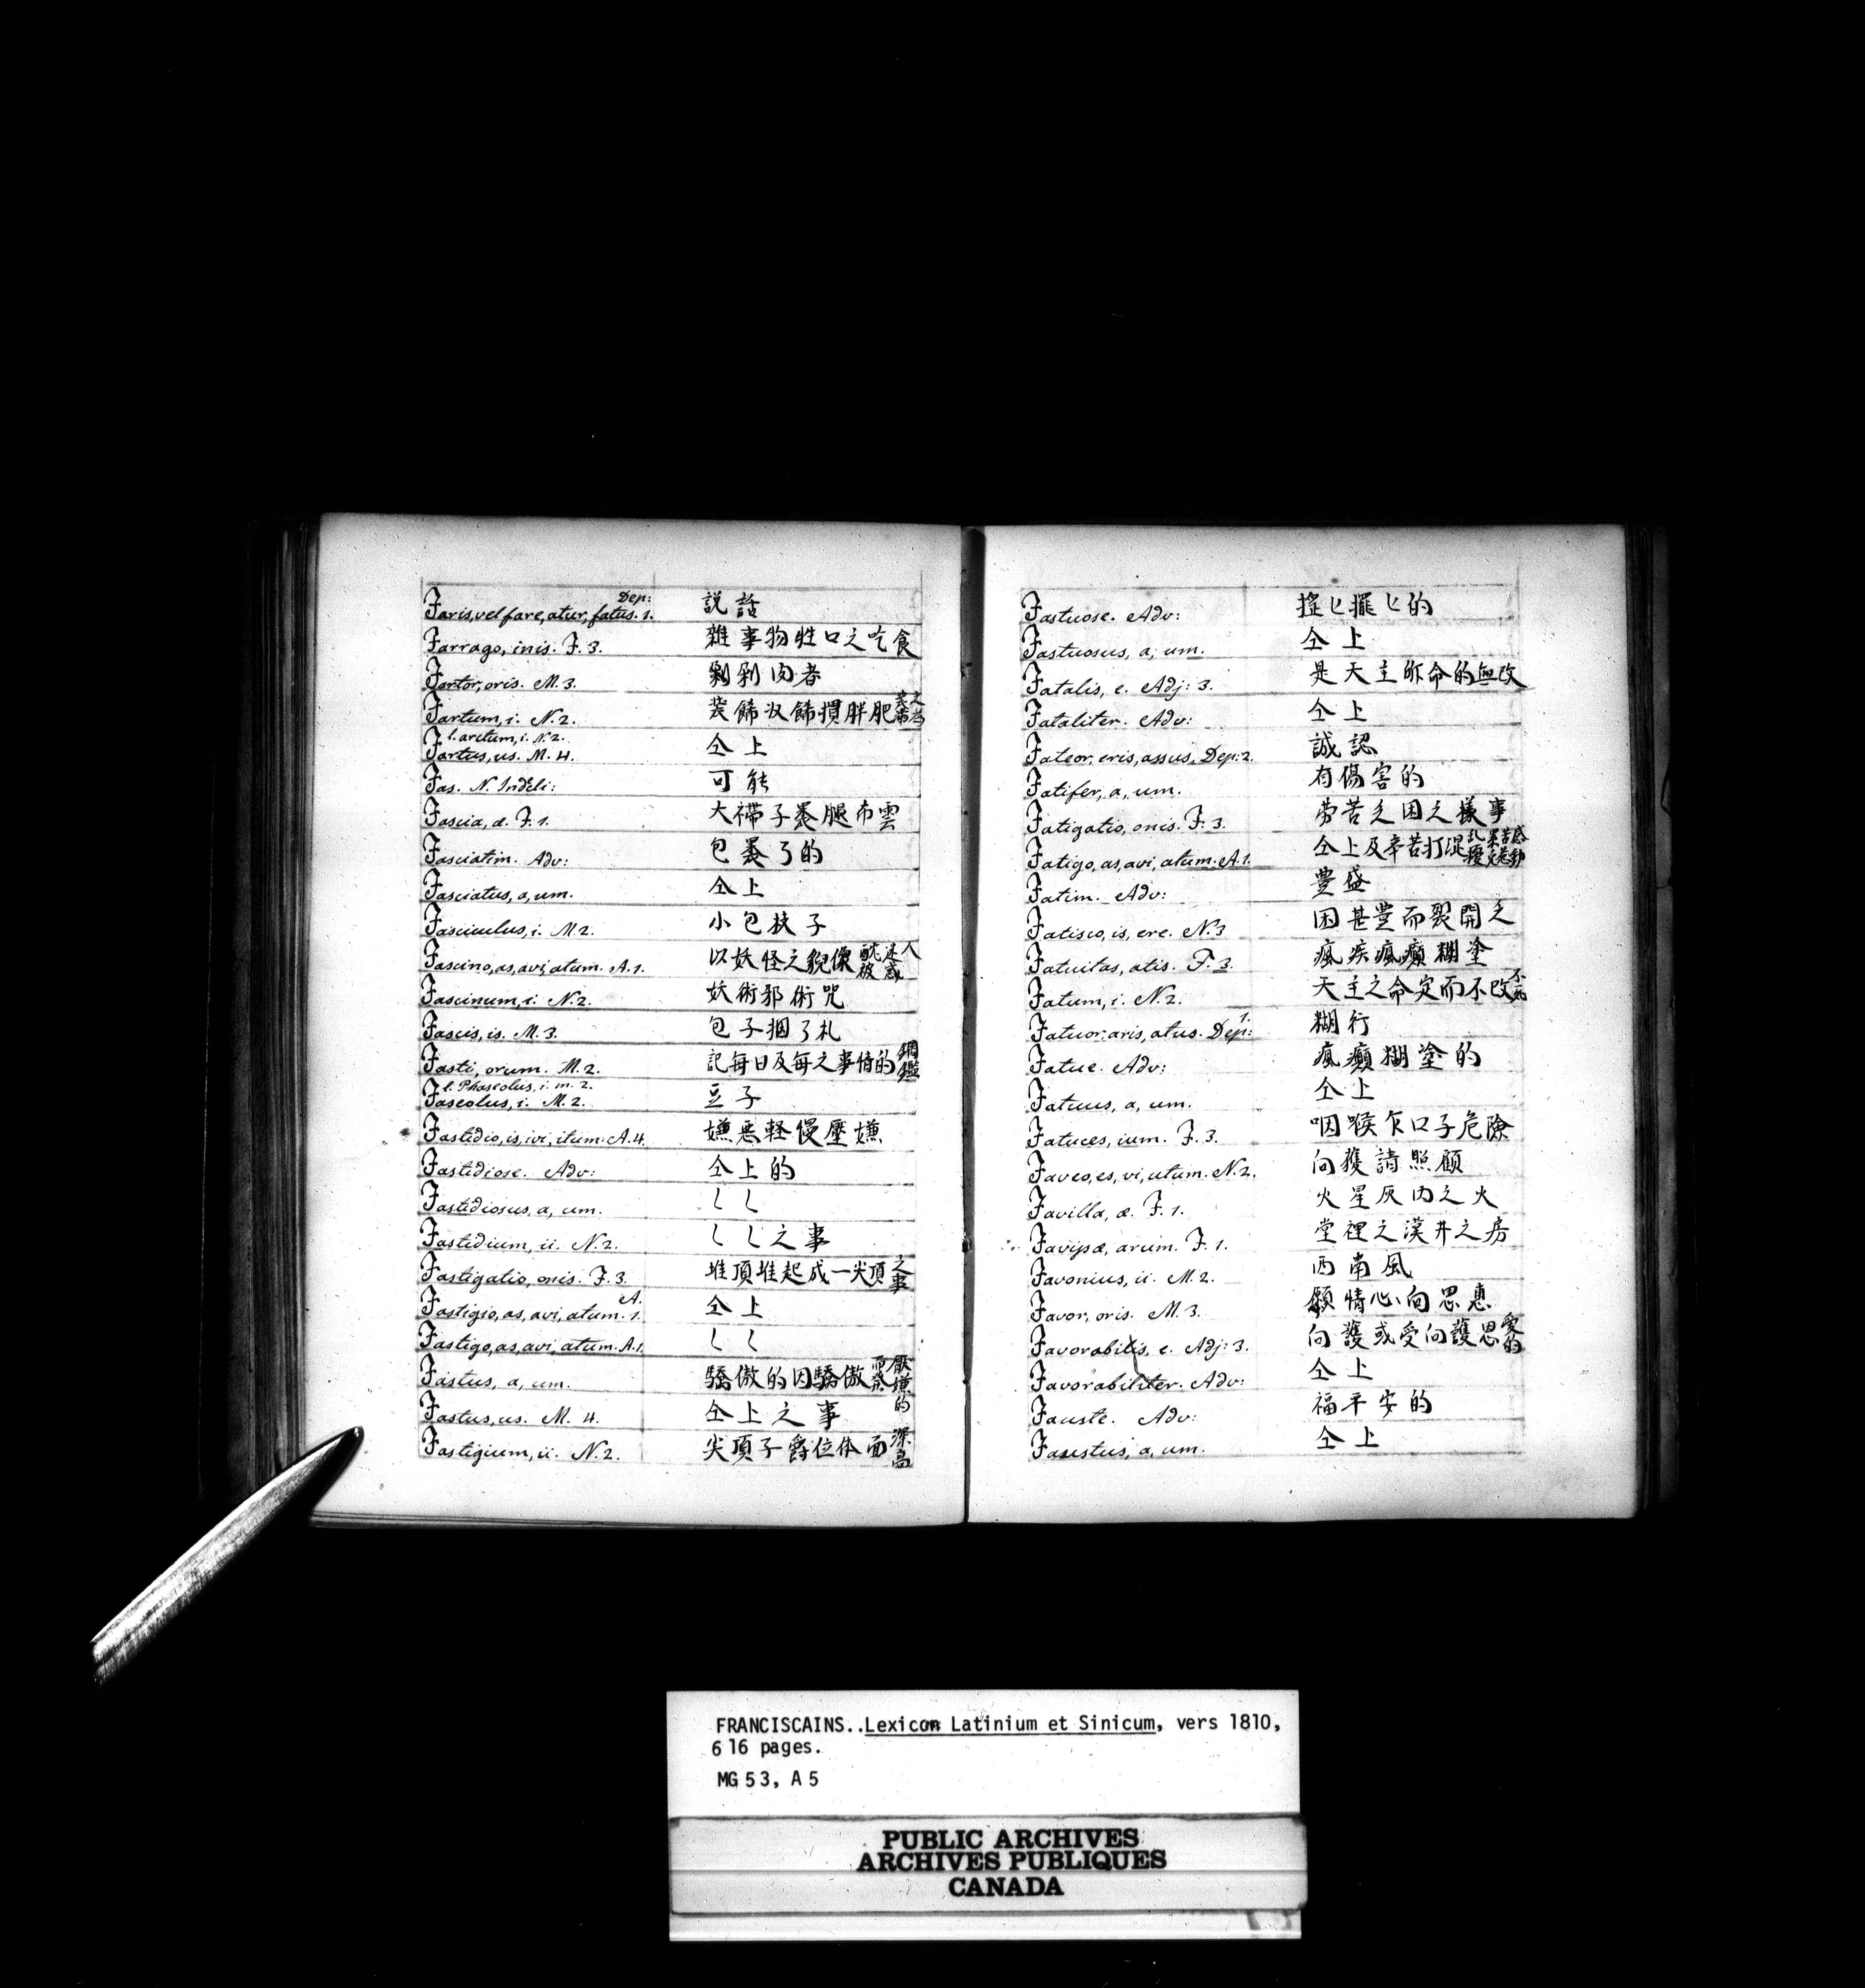 Faris, vel fare, atur, fatus. Dep: 1. 説話
Farrago, inis. F. 3. 雜事物牲口之吃食
Fartor, oris. M. 3. 剁肉者
Fartum, i. N. 2.
l. arctum, i. N. 2.
Fartus, us. M. 4. 仝上
Fas. N. Indeli: 可能
Fascia, æ. F. 1. 大襪子裹腿布雲
Fasciatim. Adv: 包裹了的
Fasciatus, a, um. 仝上
Fasciculus, i. M. 2. 小包袱子
Fascino, as, avi, atum. A. 1. 以妖怪之貌像
Fascinum, i. N. 2. 妖術邪術咒
Fascis, is. M. 3. 包子捆了札
Fasti, orum. M. 2. 記每日及每之事情的綱鑑
l. Phaseolus, i. m. 2.
Faseolus, i. M. 2. 豆子
Fastidio, is, ivi, itum. A. 4. 嫌惡軽慢壓嫌
Fastidiose. Adv: 仝上的
Fastidiosus, a, um. 〻〻
Fastidium, ii. N. 2. 〻〻之事
Fastigatio, onis. F. 3. 堆頂堆起成一尖頂之事
Fastigio, as, avi, atum. A. 1. 仝上
Fastigo, as, avi, atum. A. 1. 〻〻
Fastus, a, um. 驕傲的因驕傲而厭嫌的
Fastus, us. M. 4. 仝上之事
Fastigium, ii. N. 2. 尖頂子爵位体面深高
Fastuose. Adv: 搖〻擺〻的
Fastuosus, a, um. 仝上
Fatalis, e. Adj: 3. 是天主所命的無改
Fataliter. Adv: 仝上
Fateor, eris, assus. Dep: 2. 誠認
Fatifer, a, um. 有傷害的
Fatigatio, onis. F. 3. 劳苦乏困之樣事
Fatigo, as, avi, atum. A. 1. 仝上及辛苦打混
Fatim. Adv: 豊盛
Fatisco, is, ere. N. 3 因甚豊而裂開乏
Fatuitas, atis. F. 3. 瘋疾瘋癲糊塗
Fatum, i. N. 2. 天主之命定而不改
Fatuor, aris, atus. Dep: 1. 糊行
Fatue. Adv: 瘋癲糊塗的
Fatuus, a, um. 仝上
Fatuces, ium. F. 3. 咽喉 口子危險
Faveo, es, vi, utum. N. 2. 向護請照顧
Favilla, æ. F. 1. 火星灰内之火
Favissæ, arum. F. 1. 堂裡之漢井之房
Favonius, ii. M. 2. 西南風
Favor, oris. M. 3. 願情心向思惠
Favorabilis, e. Adj: 3. 向護或受向護思愛的
Favorabiliter. Adv: 仝上
Fauste. Adv: 福平安的
Faustus, a, um. 仝上
FRANCISCAINS..Lexicon Latinium et Sinicum, vers 1810,
616 pages.
MG 53, A 5
PUBLIC ARCHIVES
ARCHIVES PUBLIQUES
CANADA